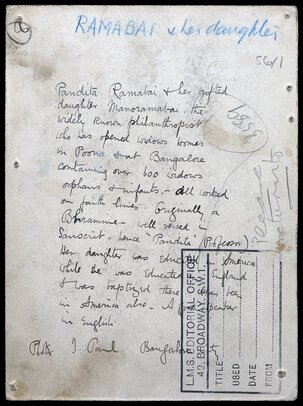 RAMABAI & her daughter
56/1
Pandita Ramabai & her gifted
daughter Manoramabai, the
widely known philanthropist
who has opened widows homes
in Poona & at Bangalore
containing over 600 widows
orphans & infants. - All worked
on faith lines. Originally a
Bhramine - well versed in
Sanscrit - hence "Pandita" (Professor)
Her daughter was educated in America
while she was educated in England
& was baptized there - has been
in America also. A good speaker
in English.
Photo I. Paul Bangalore
35589
Please return to
L.M.S. EDITORIAL OFFICE
42, BROADWAY, S.W.1.
TITLE
USED
DATE
FROM